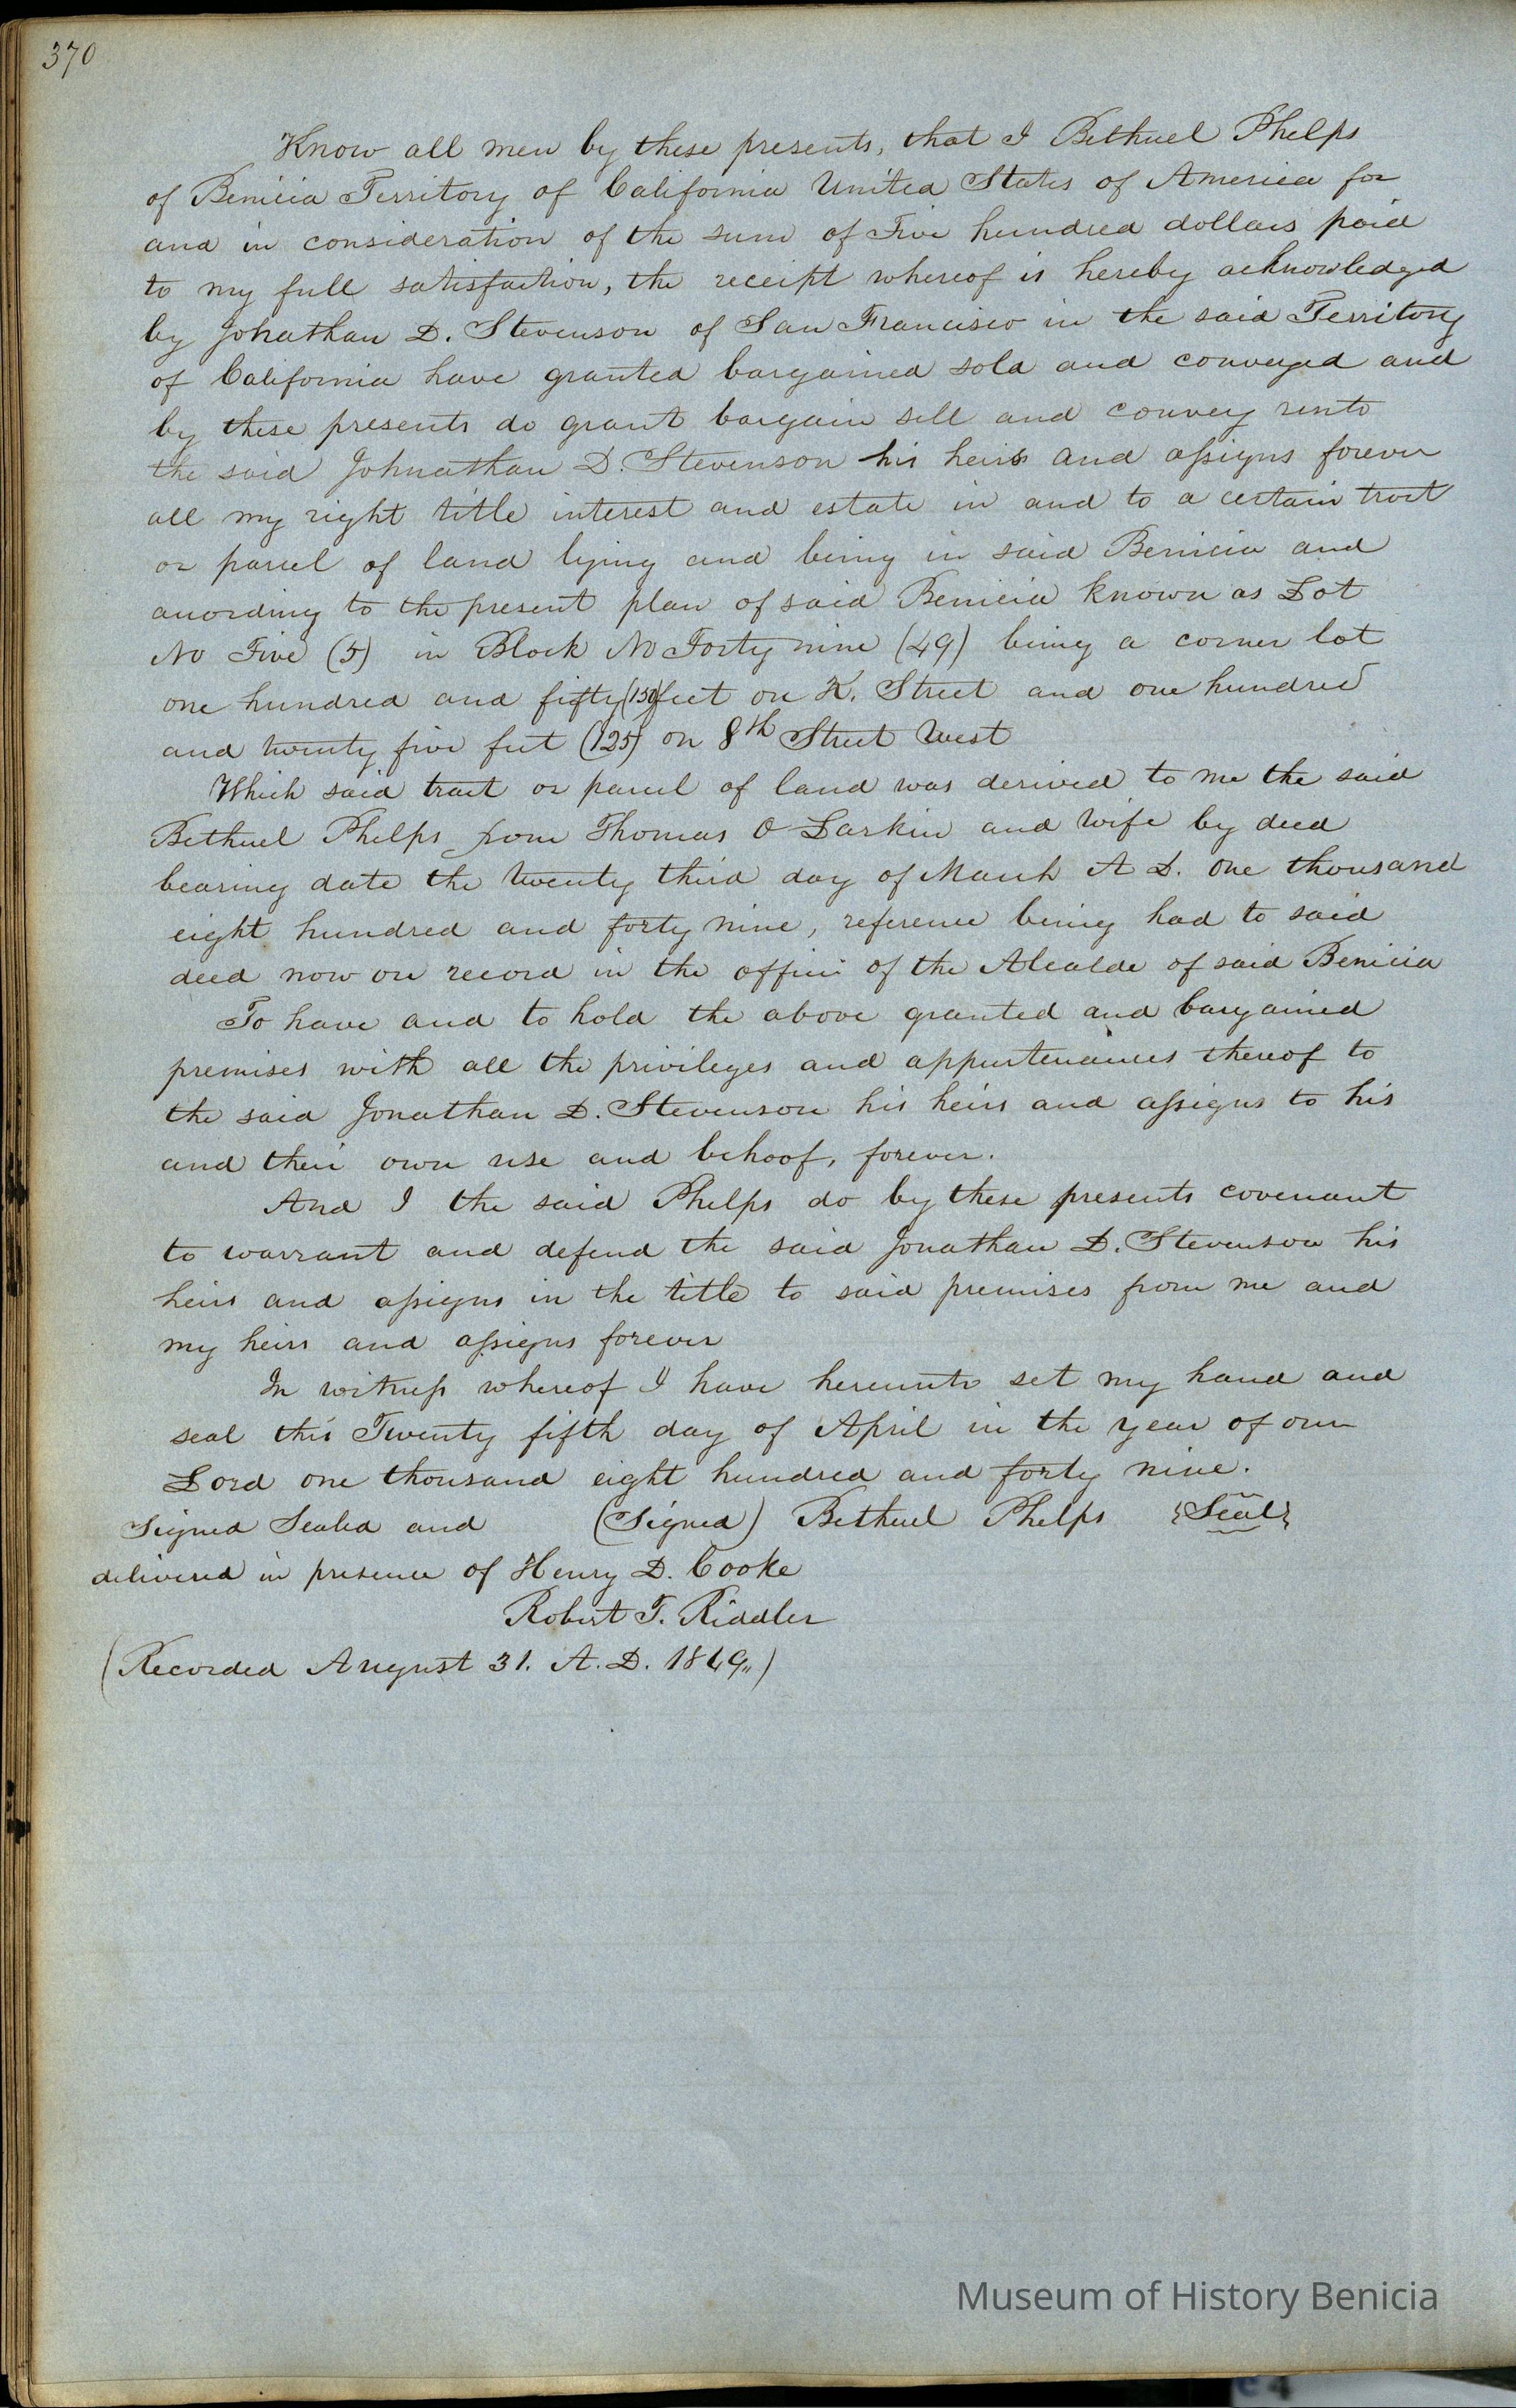 370
Know all men by these presents, that I Bethuel Phelps
of Benicia Territory of California United States of America for
and in consideration of the sum of Five hundred dollars paid
to my full satisfaction, the receipt whereof is hereby acknowledged
by Johathan D. Stevenson of San Francisco in the said Territory
of California have granted bargained sold and conveyed and
by these presents do grant bargain sell and convey unto
the said Johnathan D. Stevenson his heirs and assigns forever
all my right title interest and estate in and to a certain tract
or parcel of land lying and being in said Benicia and
according to the present plan of said Benicia known as Lot
No Five (5) in Block No Forty nine (49) being a corner lot
one hundred and fifty (150) feet on K. Street and one hundred
and twenty five feet (125) on 8th Street West
Which said tract or parcel of land was derived to me the said
Bethuel Phelps from Thomas O Larkin and Wife by deed
bearing date the twenty third day of March A D. One thousand
eight hundred and forty nine, reference being had to said
deed now on record in the office of the Alcalde of said Benicia
To have and to hold the above granted and bargained
premises with all the privileges and appurtenances thereof to
the said Jonathan D. Stevenson his heirs and assigns to his
and their own use and behoof, forever.
And I the said Phelps do by these presents covenant
to warrant and defend the said Jonathan D. Stevenson his
heirs and assigns in the title to said premises from me and
my heirs and assigns forever
In witness whereof I have hereunto set my hand and
seal this Twenty fifth day of April in the year of our
Lord one thousand eight hundred and forty nine.
Signed Sealed and (Signed) Bethuel Phelps {Seal}
delivered in presence of Henry D. Cooke
Robert T. Riddler
(Recorded August 31. A.D. 1849,,)
Museum of History Benicia